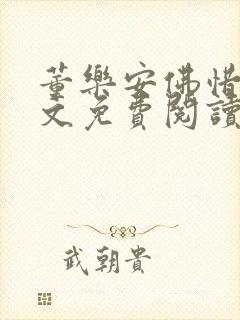 董樂安佛惜
文免費閱讀
武朝貴